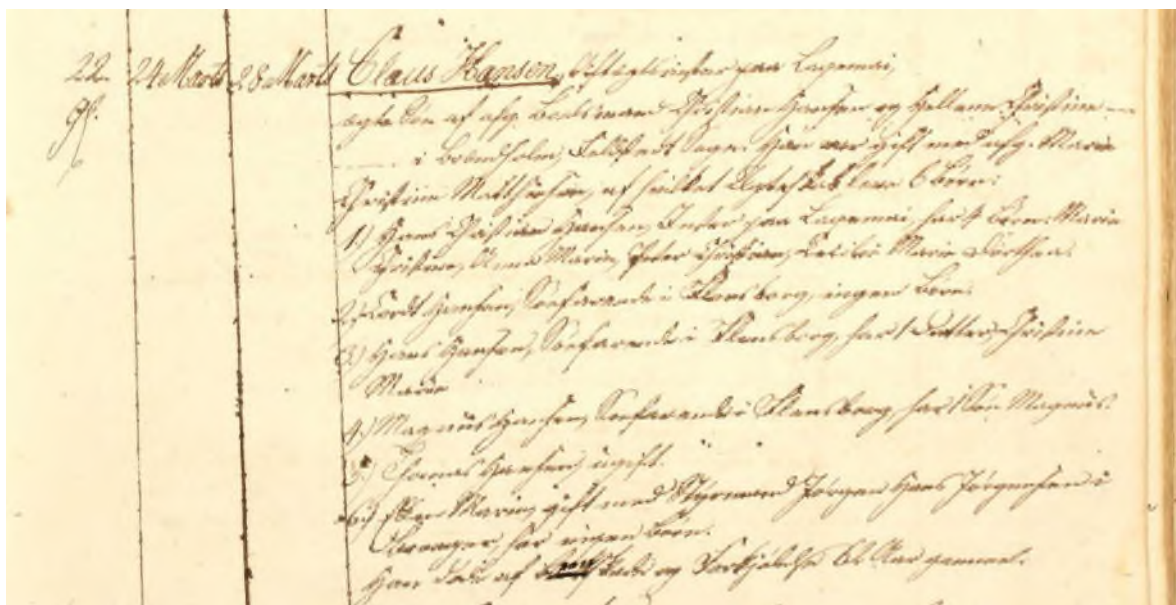 22. 24 Marts 28 Marts Claus Hansen, Aftægtsinster paa Lagemai,
gf. ægte Søn af afg. Boelsmand Christian Hansen og Hellene Christine
i Bovndholm, Feldsted Sogn. Han var gift med afg. Marie
Christine Matthiesen, af hvilket Ægteskab leve 6 Børn:
1) Hans Christian Hansen, Inster paa Lagemai, har 4 Børn: Marie
Christine, Anna Marie, Peter Christian, Marie Dorthea.
2) Cordt Hansen, Søefarende i Flensborg, ingen Børn.
3) Hans Hansen, Søefarende i Flensborg, har 1 Datter, Christine
Marie
4) Magnus Hansen, Søefarende i Flensborg, har 1 Søn Magnus.
5) Thomas Hansen, ugift.
6) Marie, gift med Styrmand Jørgen Hans Jørgensen i
har ingen Børn.
Han døde af og Forkjølelse 62 Aar gammel.